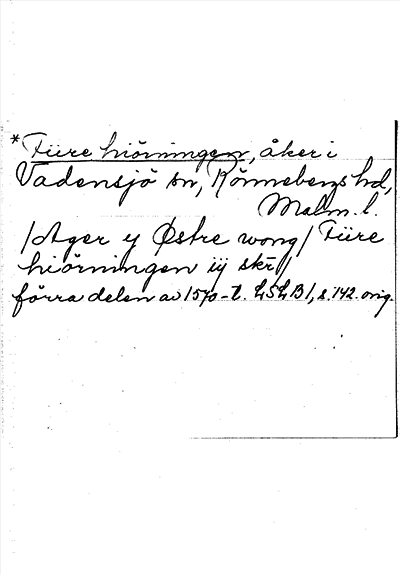 *Fiire hiörningen, åker i
Vadensjö sn, Rönnebergs hd,
Malm. l.
/Ager y Østre wong/ Fiire
hiörningen iij skr//
förra delen av 1570-t. LSLB1, s. 142. orig.